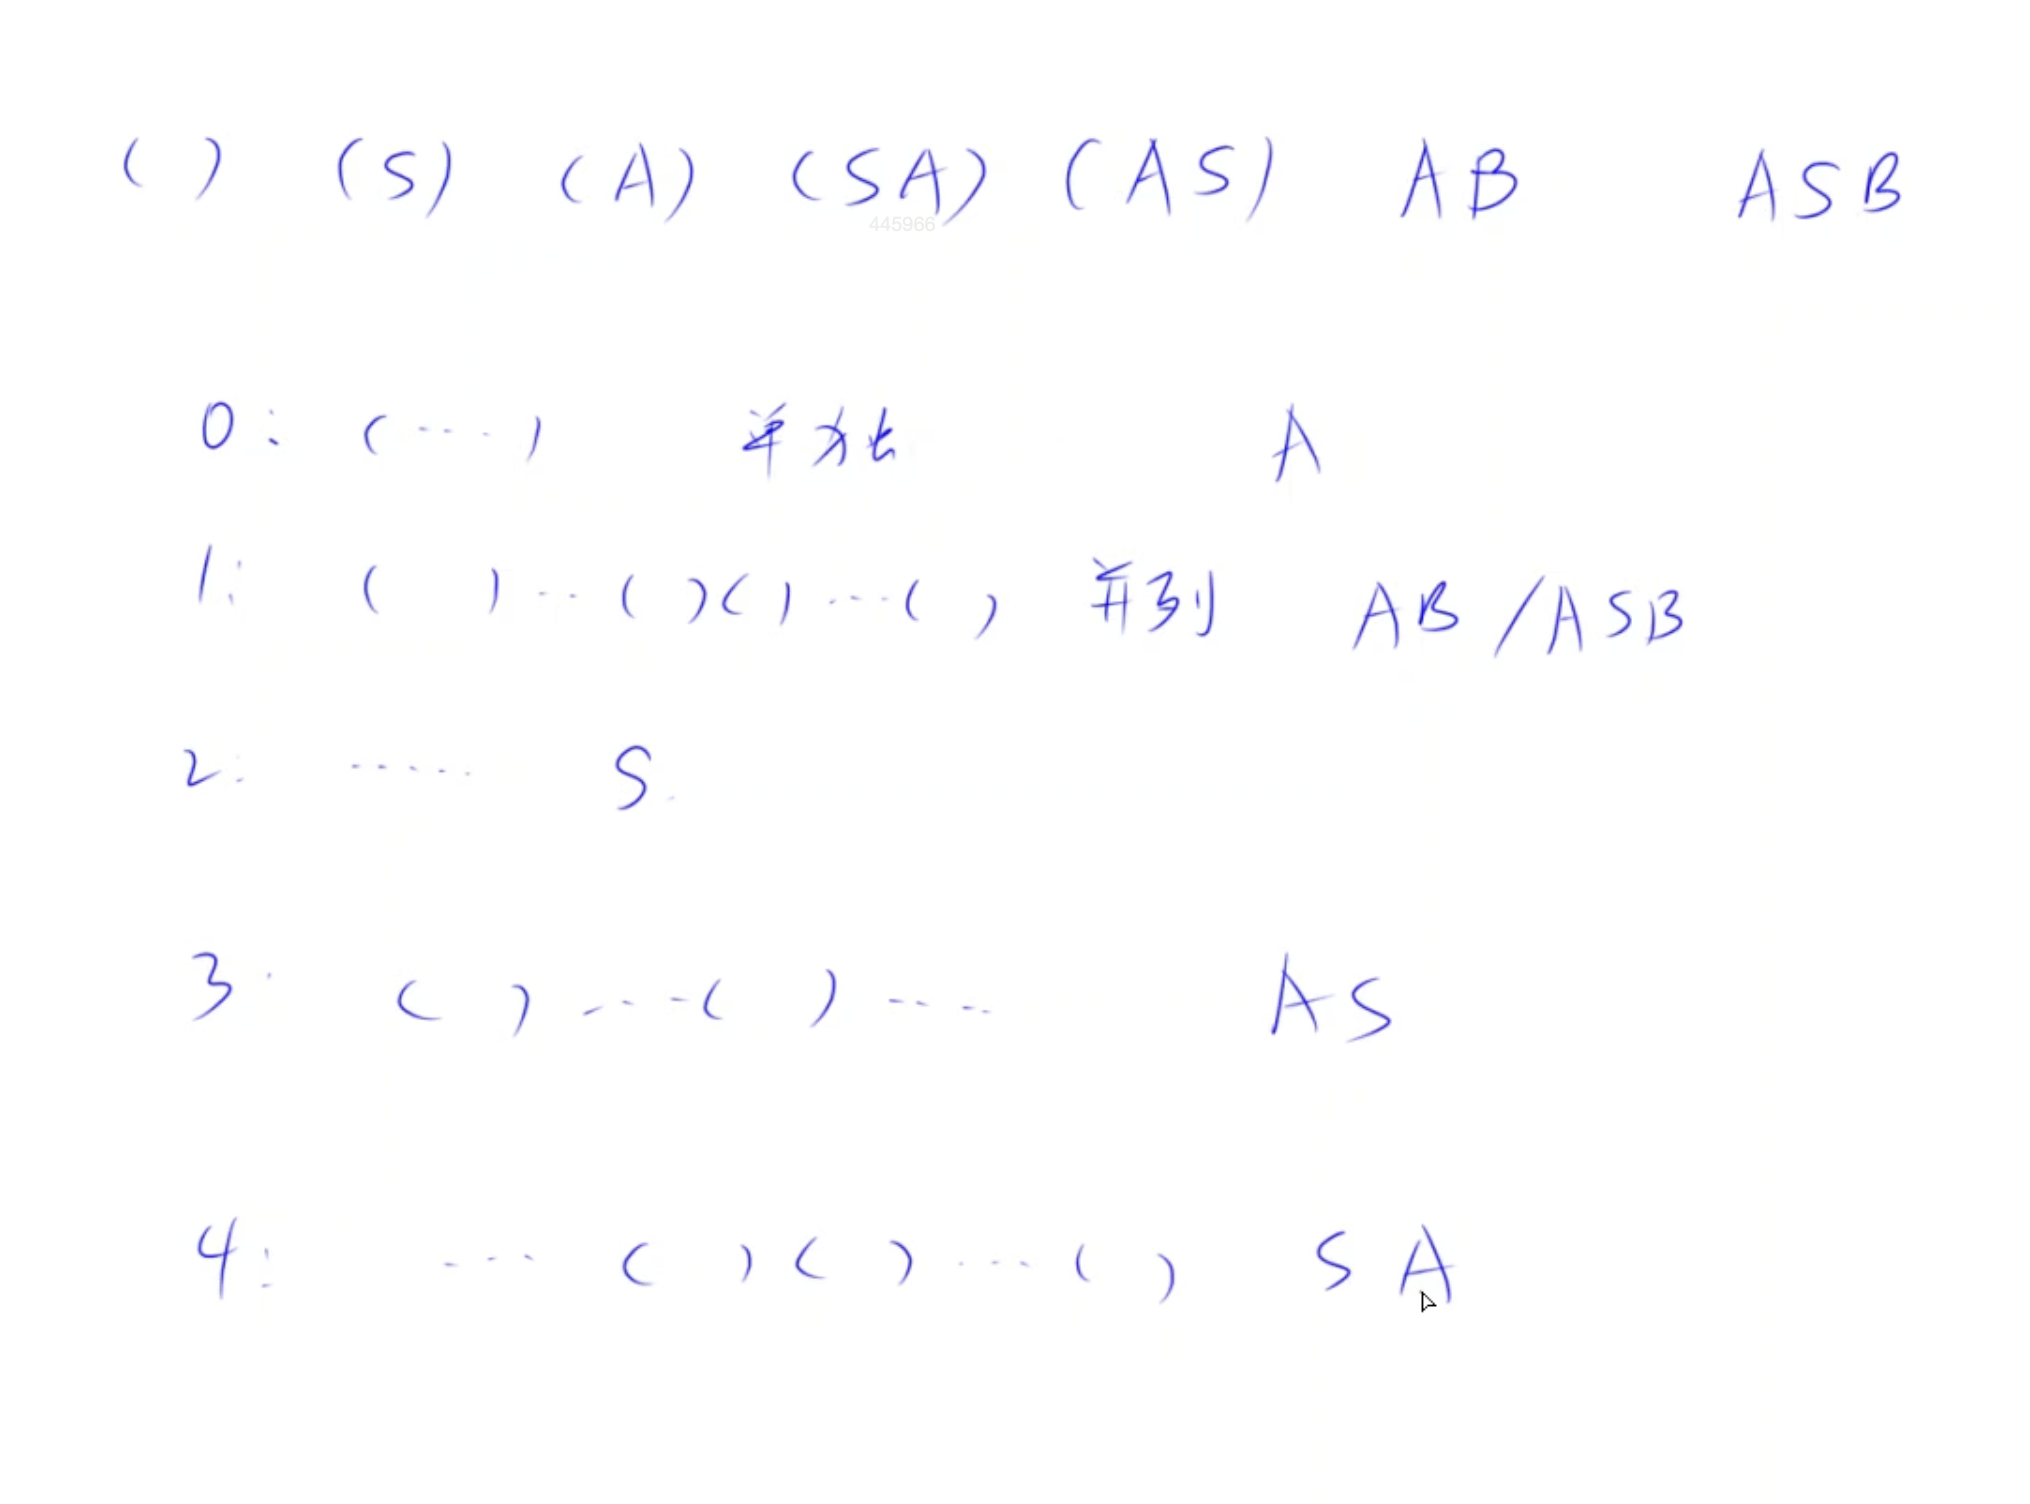 ( ) (S) (A) (SA) (AS) AB ASB
445966
0: (····) 单独 A
1: ( )···( )( )···( ) 并列 AB/ASB
2: ····· S.
3: ( )···( )···· AS
4: ···( )( )···( ) SA